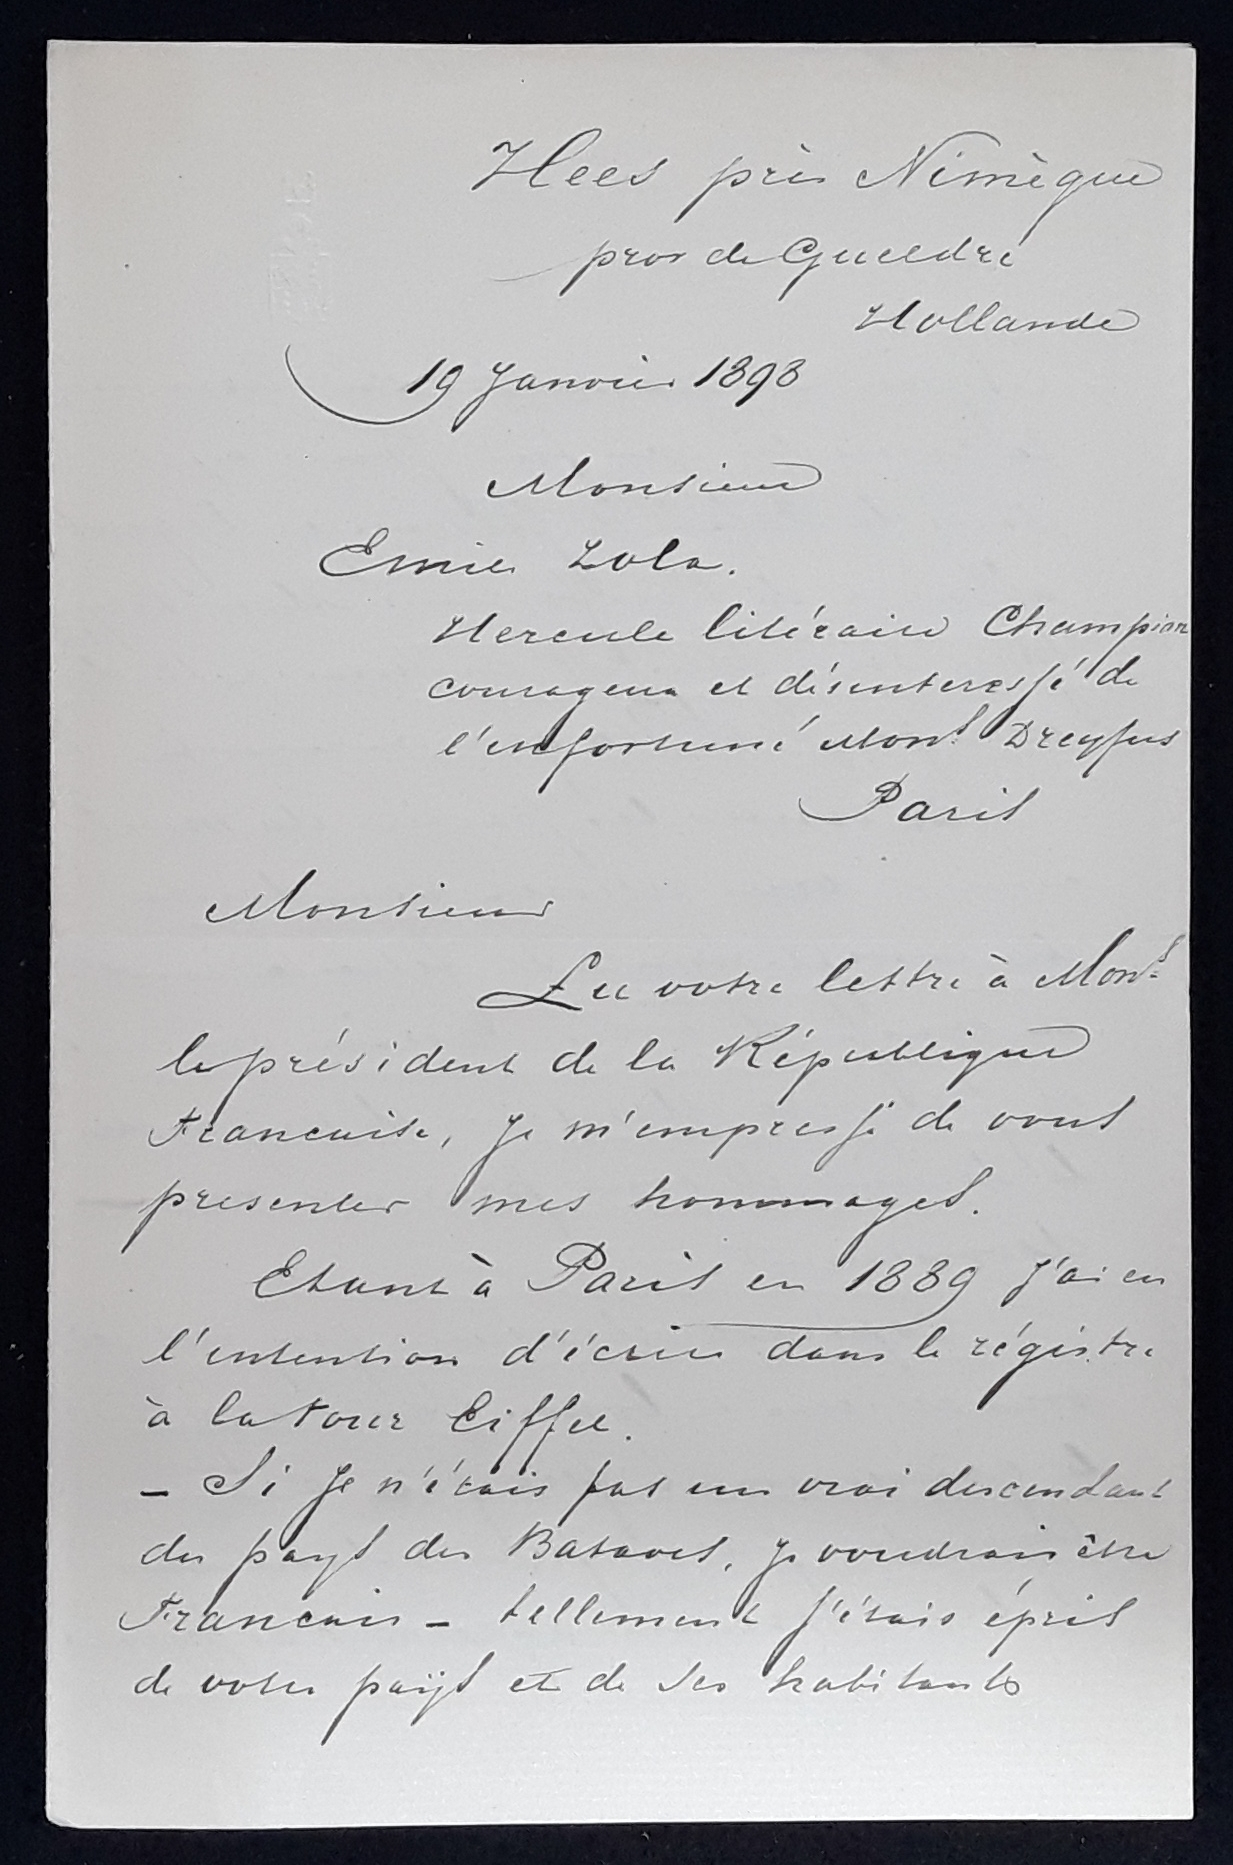 Hees près Nimègue
prov de Gueldre
Hollande
19 Janvier 1898
Monsieur
Emile Zola.
Hercule litéraire Champion
courageux et désinteressé de
l'infortuné Monsr Dreyfus
Paris
Monsieur
Lu votre lettre à Monsr
le président de la République
Francaise, je m'empresse de vous
presenter mes hommages.
Etant à Paris en 1889 j'ai eu
l'intention d'écrire dans le régistre
à la tour Eiffel.
- Si je n'étais pas un vrai descendant
du pays des Bataves, je voudrais être
Francais - tellement j'étais épris
de votre pays et de ses habitants